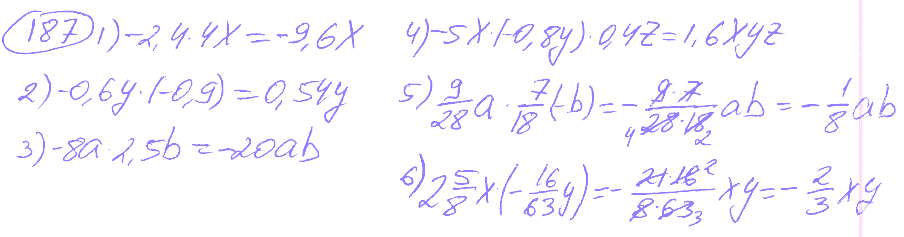 187 1) -2,4·4x = -9,6x
2) -0,6y·(-0,9) = 0,54y
3) -8a·2,5b = -20ab
4) -5x·(-0,8y)·0,4z = 1,6xyz
5) 9/28 a · 7/18 (-b) = - 9·7/28·18 ab = - 1/8 ab
4 2
6) 2 5/8 x·(- 16/63 y) = - 21·16/8·63 xy = - 2/3 xy
2 3